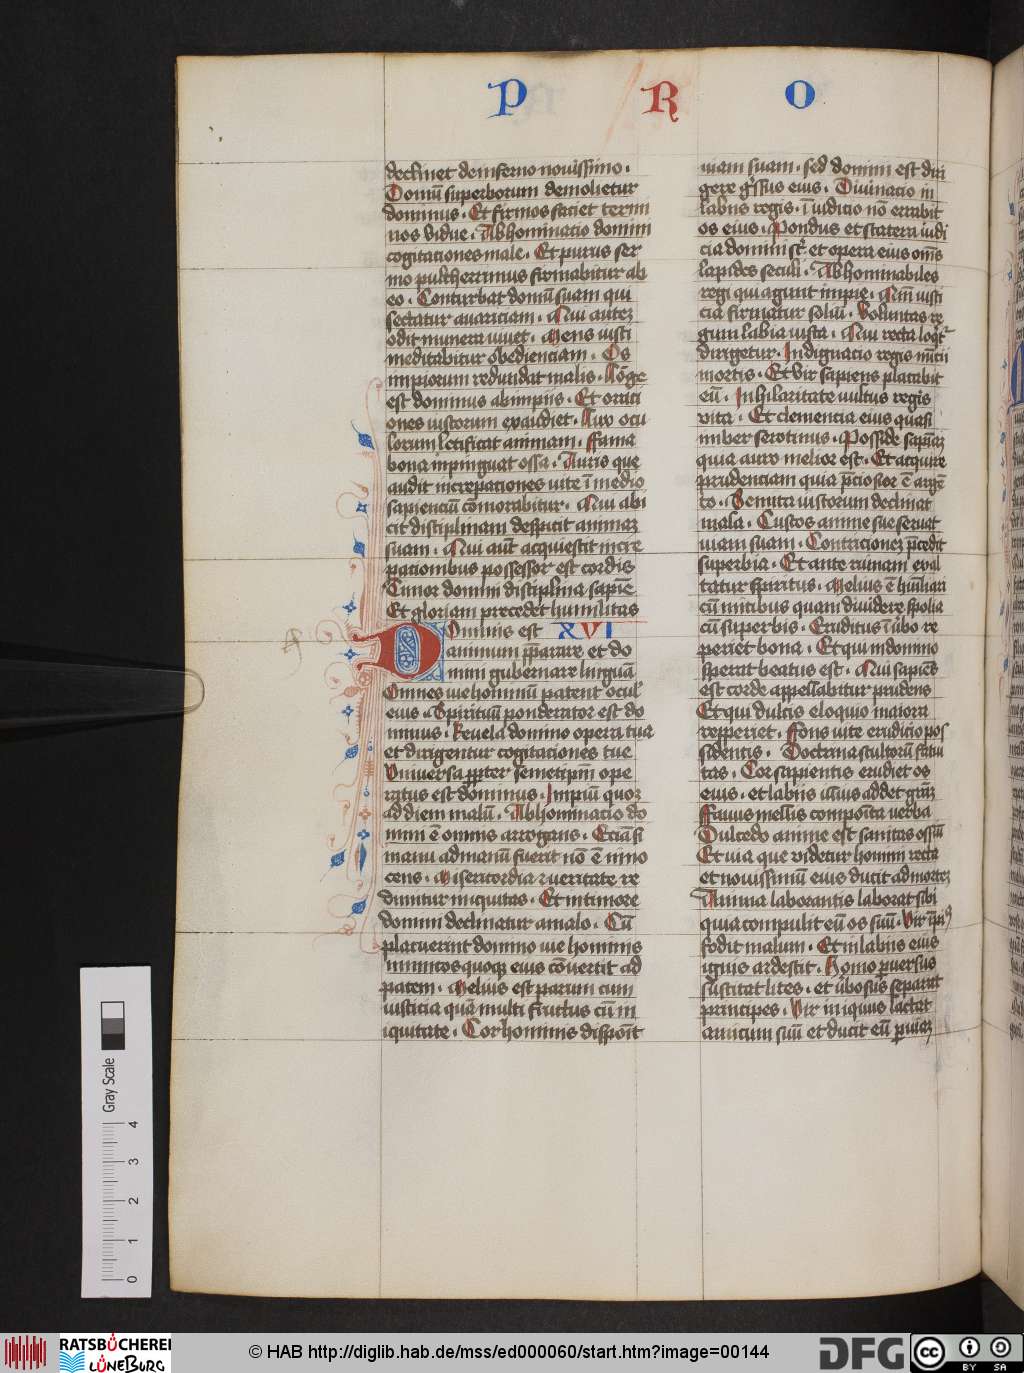 P R O
declinet de inferno novissimo .
Domū superborum demolietur
dominus . Et firmos faciet termi
nos vidue . Abhominacio domini
cogitationes male . Et purus ser
mo pulcherrimus firmabitur ab
eo . Conturbat domū suam qui
sectatur avariciam . Qui autez
odit munera vivet . Mens iusti
meditabitur obedienciam . Os
impiorum redundat malis . Lōge
est dominus ab impiis . Et oraci
ones iustorum exaudiet . Lux ocu
lorum letificat animam . Fama
bona inpinguat ossa . Auris que
audit increpationes vite ī medio
sapienciū cōmorabitur . Qui abi
cit disciplinam despicit animaz
suam . Qui aūt acquiescit incre
pationibus possessor est cordis
Timor domini disciplina sapiē
Et gloriam precedet humilitas
Ominis est XVI
animum p̄parare et do
mini gubernare linguā
Omnes vie hominū patent ocul
eius . Spirituū ponderator est do
minus . Revela domino opera tua
et dirigentur cogitationes tue
Universa ꝓpter semetipm̄ ope
ratus est dominus . Impiū quoqꝫ
ad diem malū . Abhominacio do
mini ē omnis arrogans . Eciā si
manu ad manū fuerit nō ē inno
cens . Misericordia ⁊ veritate re
dimitur iniquitas . Et in timore
domini declinatur a malo . Cū
placuerint domino vie hominis
inimicos quoqꝫ eius cōvertit ad
pacem . Melius est parum cum
iusticia quā multi fructus cū in
iquitate . Cor hominis dispōit
viam suam . sed domini est diri
gere gressus eius . Divinacio in
labiis regis . ī iudicio nō errabit
os eius . Pondus et statera iudi
cia domini st̄ . et opera eius om̄s
lapides seculi . Abhominabiles
regi qui agunt impie . Qm̄ iusti
cia firmatur soliū . Voluntas re
gum labia iusta . Qui recta loqt̄
dirigetur . Indignacio regis nūcii
mortis . Et vir sapiens placabit
eū . In hilaritate vultus regis
vita . Et clemencia eius quasi
imber serotinus . Posside sapiam̄
quia auro melior est . Et acquire
prudenciam quia p̄ciosior ē argē
to . Semita iustorum declinat
mala . Custos anime sue servat
viam suam . Contricionez p̄cedit
superbia . Et ante ruinam exal
tatur spiritus . Melius ē hūiliari
cū mitibus quam dividere spolia
cū superbis . Eruditus ī vbo re
periet bona . Et qui in domino
sperat beatus est . Qui sapiēs
est corde appellabitur prudens
Et qui dulcis eloquio maiora
repperiet . Fons vite erudicio pos
sidentis . Doctrina stultorū fatui
tas . Cor sapientis erudiet os
eius . et labiis illius addet grām
Favus mellis composita verba
Dulcedo anime est sanitas ossiū
Et via que videtur homini recta
et novissimū eius ducit ad mortez
Anima laborantis laborat sibi
quia compulit eū os suū . Vir īpiꝰ
fodit malum . Et in labiis eius
ignis ardescit . Homo ꝑversus
suscitat lites . et v̄bosus separat
principes . Vir iniquus lactat
amicum suū et ducit eū ꝑ viaz
Gray Scale
4
3
2
1
0
RATSBÜCHEREI
LÜNEBURG
© HAB http://diglib.hab.de/mss/ed000060/start.htm?image=00144
DFG
cc BY SA